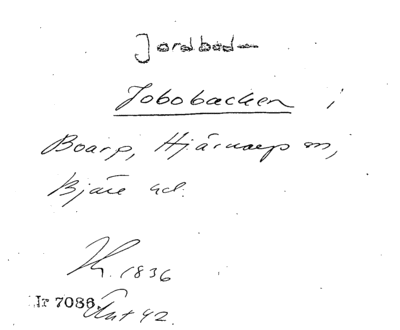 Jordbod-
Jobobacken i
Boarp, Hjärnarp sn,
Bjäre hd.
K. 1836
Ir 7036. Ant 42.